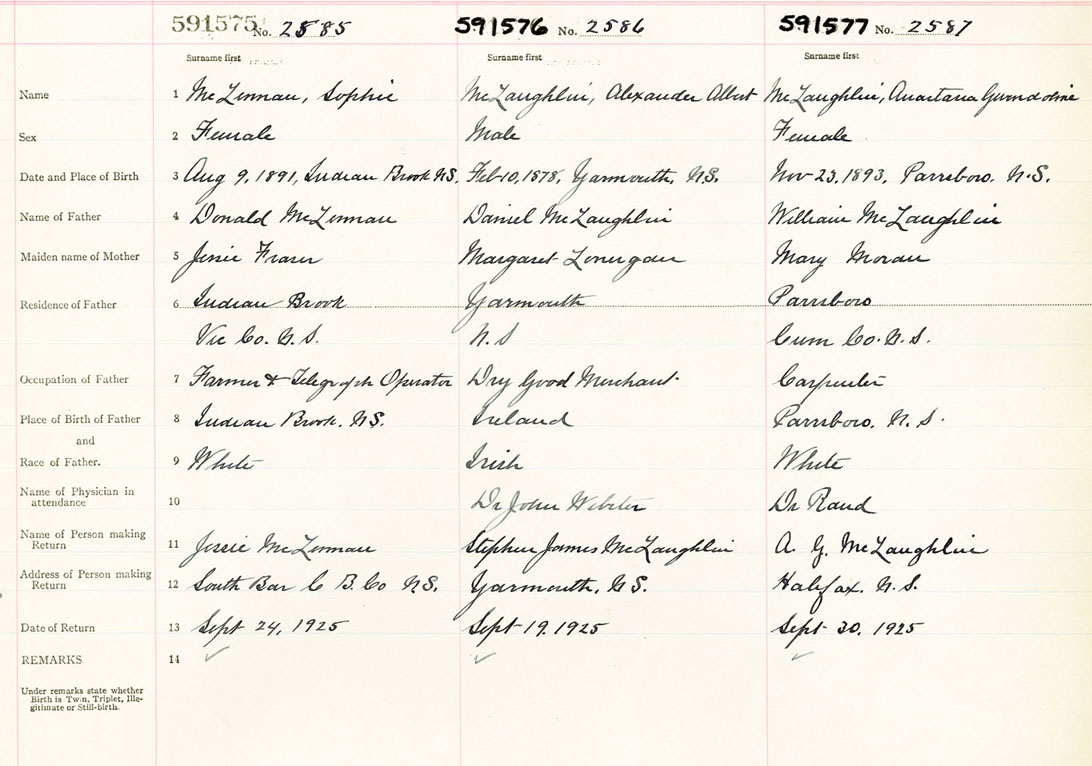 591575 No. 2585 591576 No. 2586 591577 No. 2587
Surname first Surname first Surname first
Name 1 McLennan, Sophie McLaughlin, Alexander Albert McLaughlin, Anastasia Gwendoline
Sex 2 Female Male Female
Date and Place of Birth 3 Aug 9, 1891, Indian Brook N.S. Feb-10, 1878, Yarmouth, N.S. Nov-23, 1893, Parrsboro. N.S.
Name of Father 4 Donald McLennan Daniel McLaughlin William McLaughlin
Maiden name of Mother 5 Jessie Fraser Margaret Lonergan Mary Moran
Residence of Father 6 Indian Brook Yarmouth Parrsboro
Vic Co. N.S. N.S Cum Co. N.S.
Occupation of Father 7 Farmer & Telegraph Operator Dry Good Merchant. Carpenter
Place of Birth of Father 8 Indian Brook. N.S. Ireland Parrsboro. N.S.
and
Race of Father. 9 White Irish White
Name of Physician in
attendance 10 Dr John Webster Dr Rand
Name of Person making
Return 11 Jessie McLennan Stephen James McLaughlin A. G. McLaughlin
Address of Person making
Return 12 South Bar C B. Co N.S. Yarmouth, N.S. Halifax. N.S.
Date of Return 13 Sept 24, 1925 Sept 19. 1925 Sept 30. 1925
REMARKS 14
Under remarks state whether
Birth is Twin, Triplet, Ille-
gitimate or Still-birth.